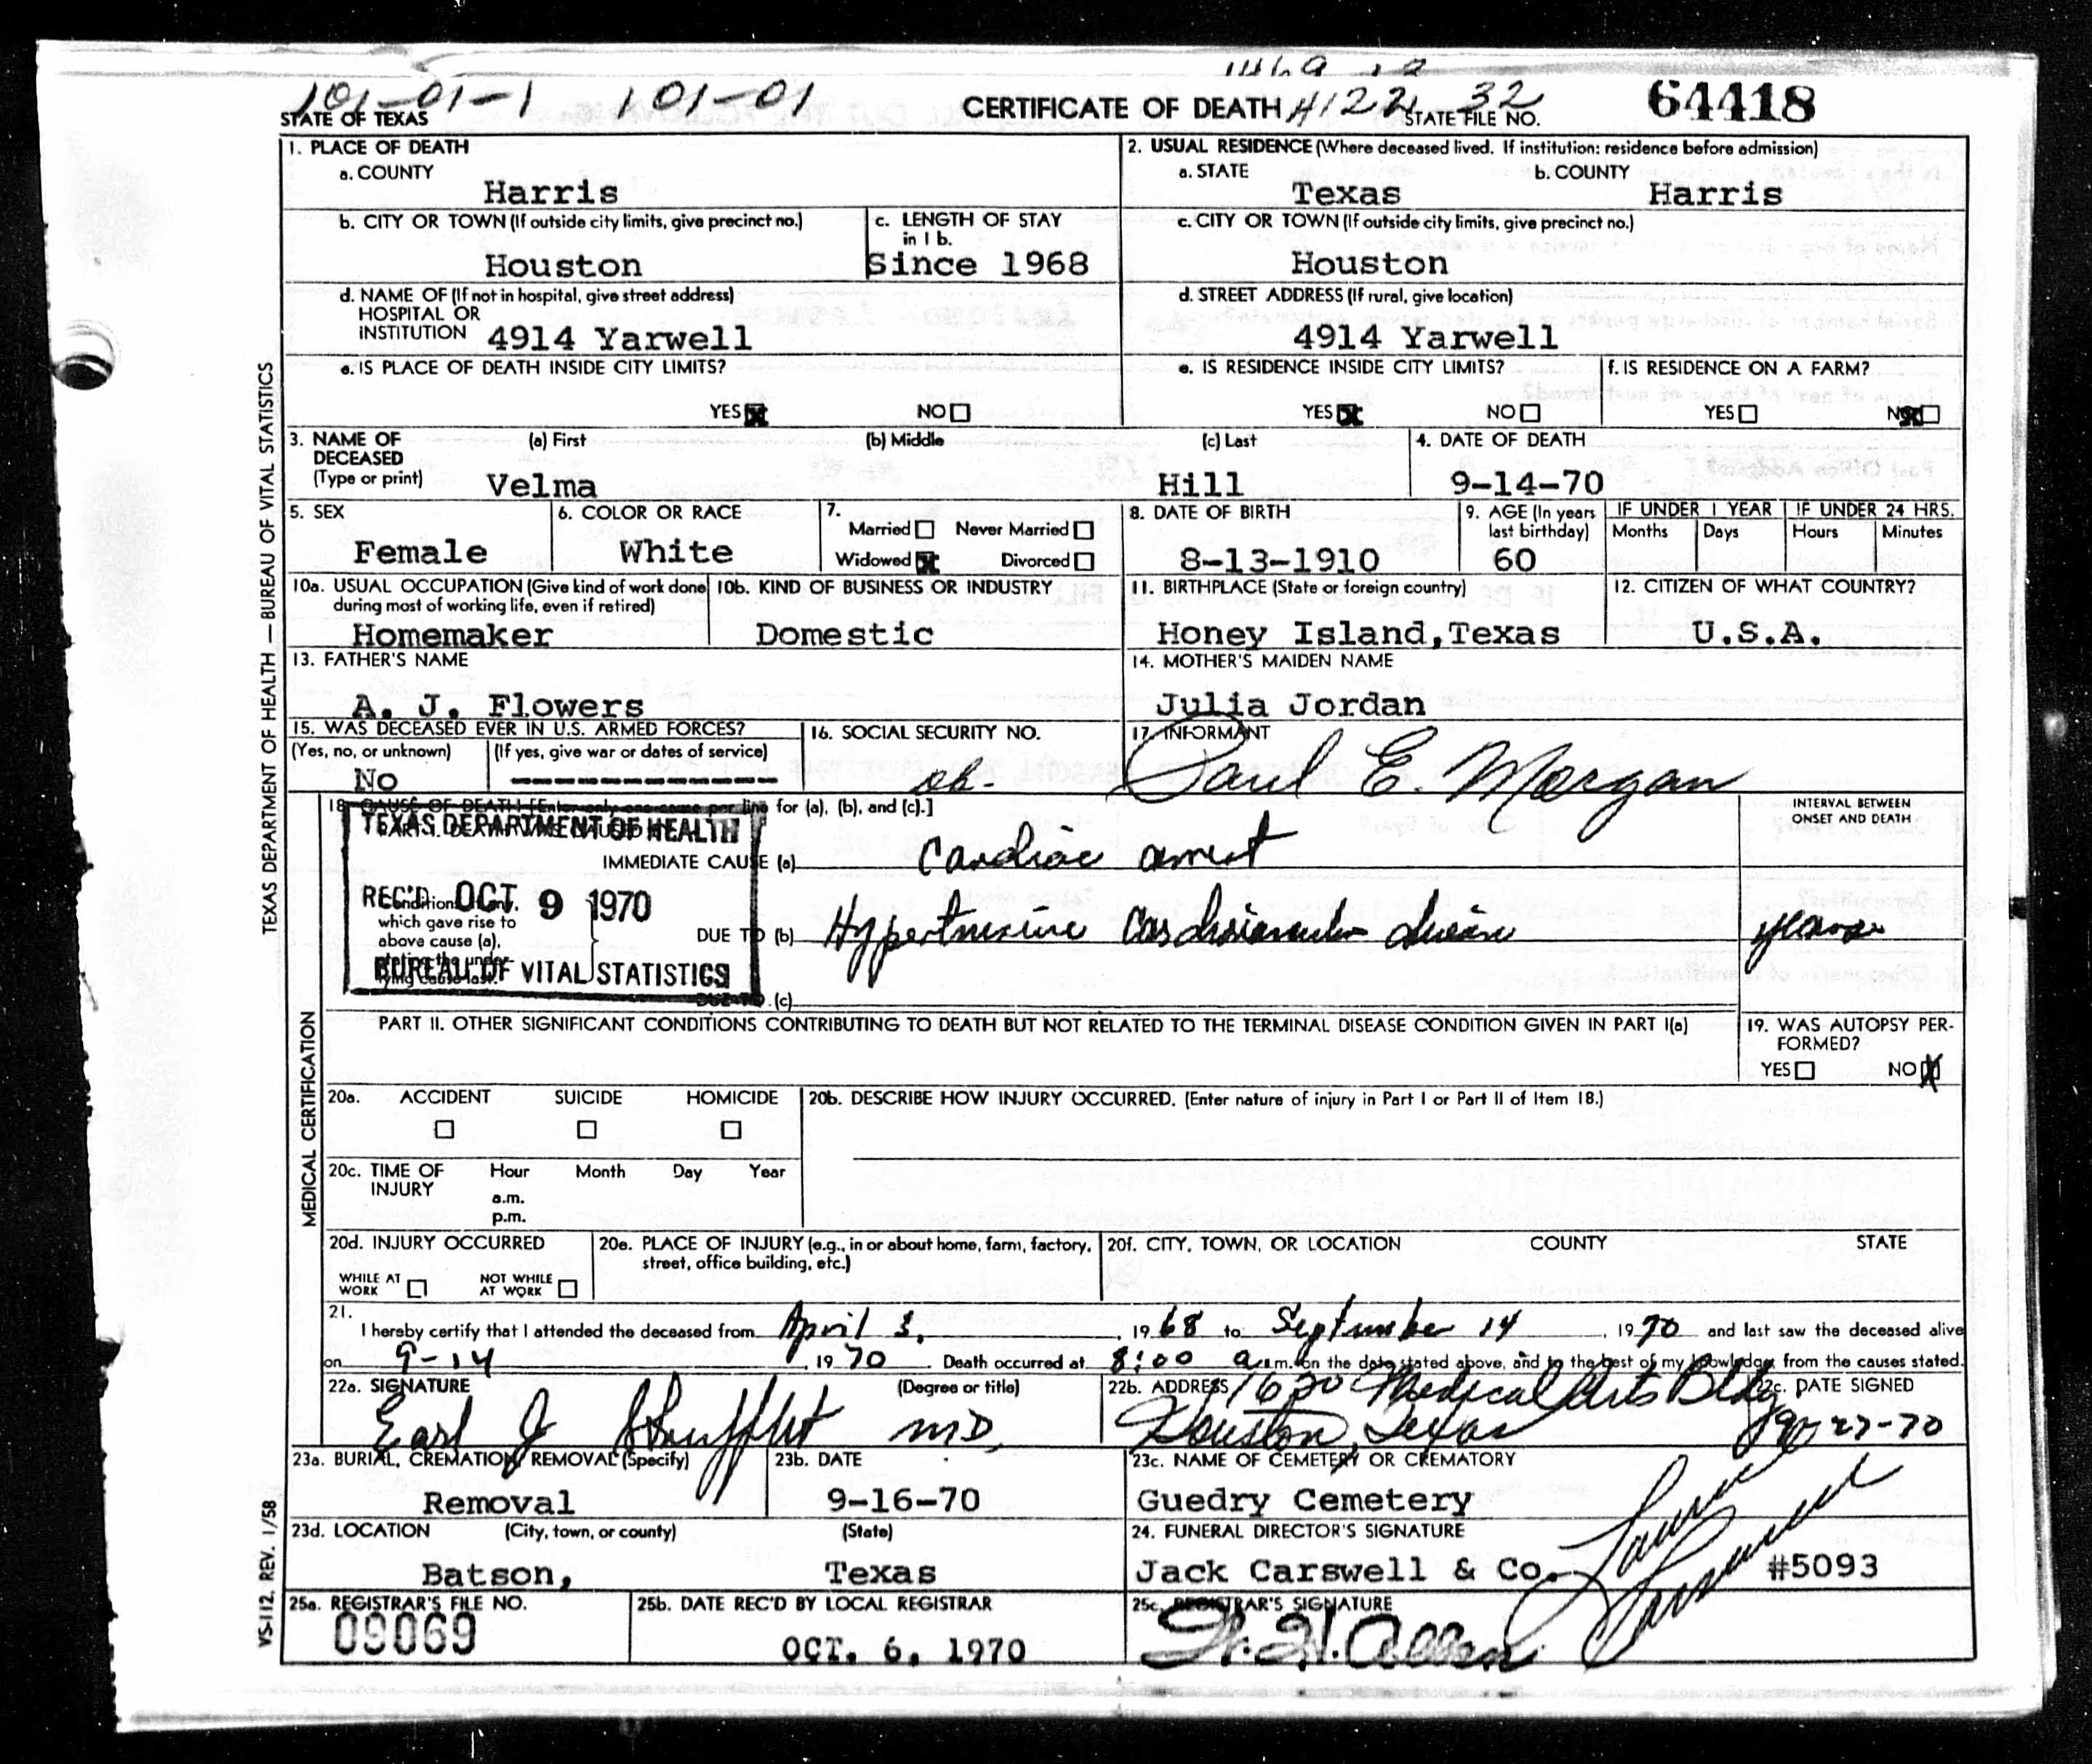 101-01-1 101-01
STATE OF TEXAS
CERTIFICATE OF DEATH
STATE FILE NO.
64418
1. PLACE OF DEATH
a. COUNTY
Harris
2. USUAL RESIDENCE (Where deceased lived. If institution: residence before admission)
a. STATE
Texas
b. COUNTY
Harris
b. CITY OR TOWN (If outside city limits, give precinct no.)
Houston
c. LENGTH OF STAY
in 1 b.
Since 1968
c. CITY OR TOWN (If outside city limits, give precinct no.)
Houston
d. NAME OF (If not in hospital, give street address)
HOSPITAL OR
INSTITUTION 4914 Yarwell
d. STREET ADDRESS (If rural, give location)
4914 Yarwell
e. IS PLACE OF DEATH INSIDE CITY LIMITS?
YES NO
e. IS RESIDENCE INSIDE CITY LIMITS?
YES NO
f. IS RESIDENCE ON A FARM?
YES NO
3. NAME OF
DECEASED
(Type or print)
(a) First
Velma
(b) Middle
(c) Last
Hill
4. DATE OF DEATH
9-14-70
5. SEX
Female
6. COLOR OR RACE
White
7.
Married Never Married
Widowed Divorced
8. DATE OF BIRTH
8-13-1910
9. AGE (In years
last birthday)
60
IF UNDER 1 YEAR
Months Days
IF UNDER 24 HRS.
Hours Minutes
10a. USUAL OCCUPATION (Give kind of work done
during most of working life, even if retired)
Homemaker
10b. KIND OF BUSINESS OR INDUSTRY
Domestic
11. BIRTHPLACE (State or foreign country)
Honey Island, Texas
12. CITIZEN OF WHAT COUNTRY?
U.S.A.
13. FATHER'S NAME
A. J. Flowers
14. MOTHER'S MAIDEN NAME
Julia Jordan
15. WAS DECEASED EVER IN U.S. ARMED FORCES?
(Yes, no, or unknown) (If yes, give war or dates of service)
No
16. SOCIAL SECURITY NO.
17. INFORMANT
Paul E. Morgan
18. CAUSE OF DEATH [Enter only one cause per line for (a), (b), and (c).]
TEXAS DEPARTMENT OF HEALTH
REC'D OCT. 9 1970
BUREAU OF VITAL STATISTICS
INTERVAL BETWEEN
ONSET AND DEATH
IMMEDIATE CAUSE (a) Cardiac arrest
which gave rise to
above cause (a),
DUE TO (b) Hypertensive Cardiovascular disease
years
DUE TO (c)
PART II. OTHER SIGNIFICANT CONDITIONS CONTRIBUTING TO DEATH BUT NOT RELATED TO THE TERMINAL DISEASE CONDITION GIVEN IN PART I(a)
19. WAS AUTOPSY PER-
FORMED?
YES NO
20a. ACCIDENT SUICIDE HOMICIDE
20b. DESCRIBE HOW INJURY OCCURRED. (Enter nature of injury in Part I or Part II of Item 18.)
20c. TIME OF
INJURY
Hour Month Day Year
a.m.
p.m.
20d. INJURY OCCURRED
WHILE AT
WORK
NOT WHILE
AT WORK
20e. PLACE OF INJURY (e.g., in or about home, farm, factory,
street, office building, etc.)
20f. CITY, TOWN, OR LOCATION COUNTY STATE
21.
I hereby certify that I attended the deceased from April 3, 1968 to September 14, 1970 and last saw the deceased alive
on 9-14, 1970. Death occurred at 8:00 a.m. on the date stated above, and to the best of my knowledge, from the causes stated.
22a. SIGNATURE (Degree or title)
Earl J MD,
22b. ADDRESS 1620 Medical Arts Bldg
Houston, Texas
22c. DATE SIGNED
23a. BURIAL, CREMATION, REMOVAL (Specify)
Removal
23b. DATE
9-16-70
23c. NAME OF CEMETERY OR CREMATORY
Guedry Cemetery
23d. LOCATION (City, town, or county) (State)
Batson, Texas
24. FUNERAL DIRECTOR'S SIGNATURE
Jack Carswell & Co. #5093
25a. REGISTRAR'S FILE NO.
09069
25b. DATE REC'D BY LOCAL REGISTRAR
OCT. 6, 1970
25c. REGISTRAR'S SIGNATURE
TEXAS DEPARTMENT OF HEALTH — BUREAU OF VITAL STATISTICS
MEDICAL CERTIFICATION
VS-112. REV. 1/58